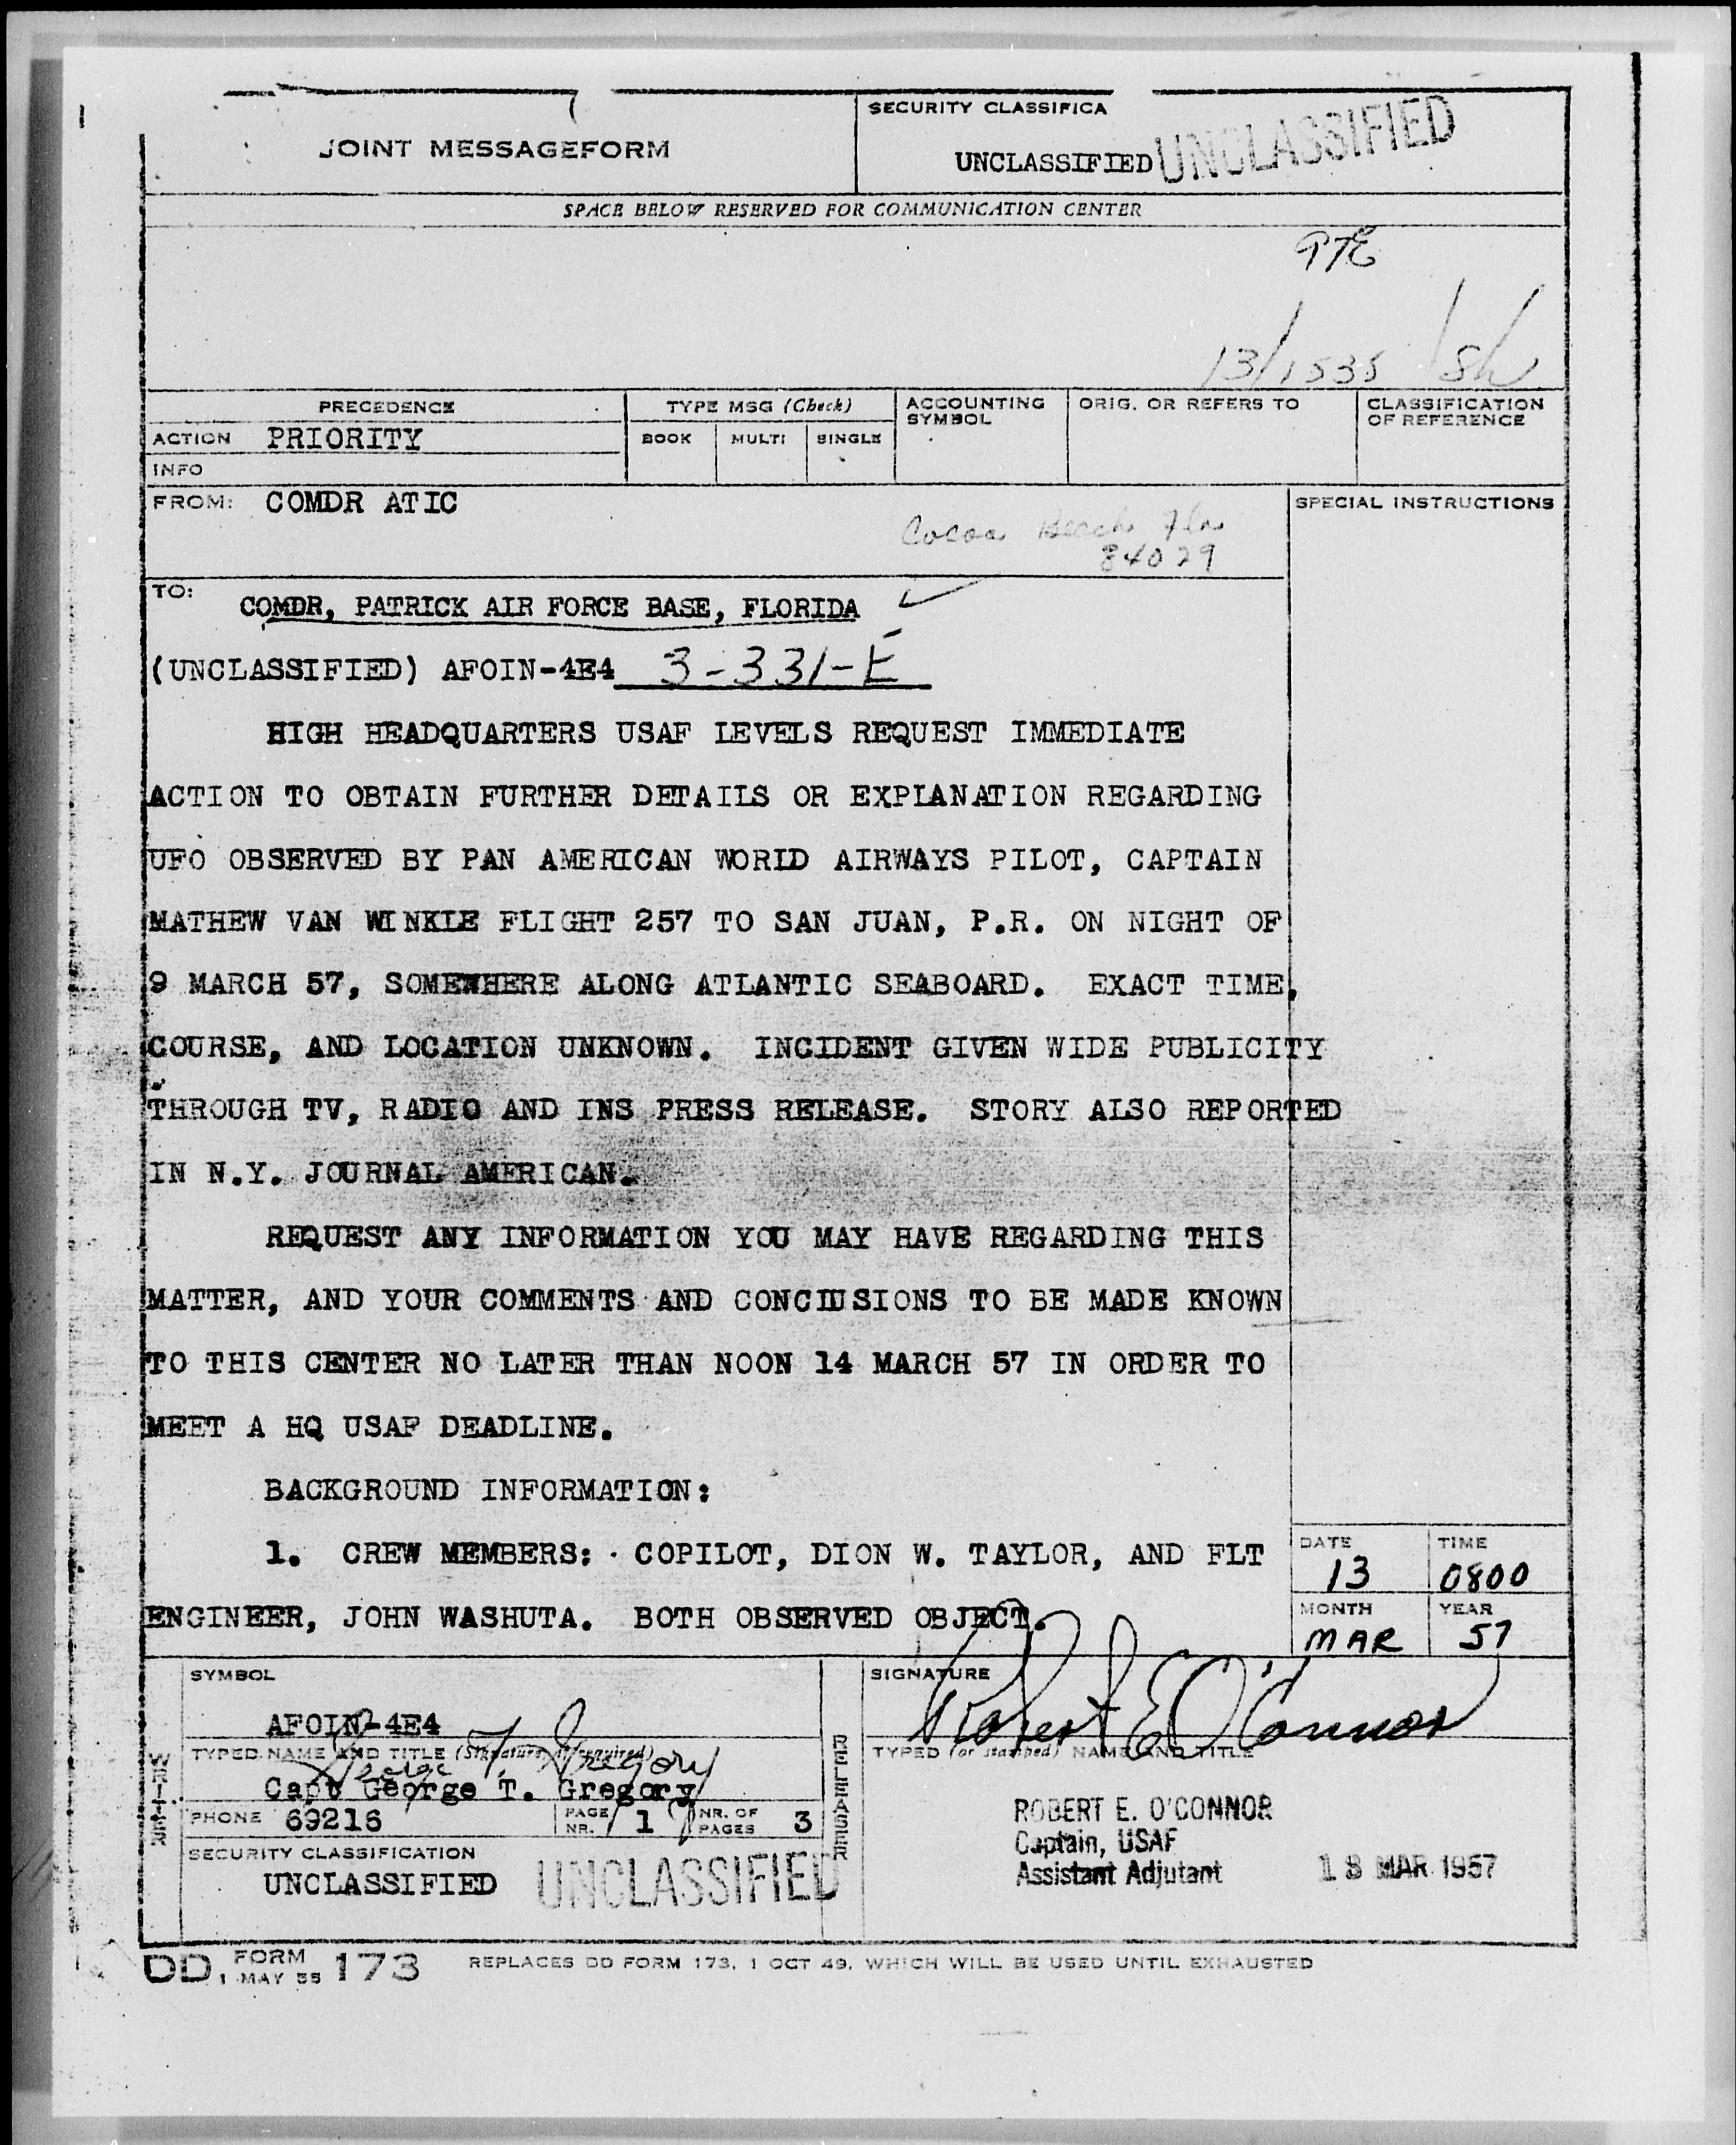 SECURITY CLASSIFICA
JOINT MESSAGEFORM
UNCLASSIFIED UNCLASSIFIED
SPACE BELOW RESERVED FOR COMMUNICATION CENTER
13/1535
PRECEDENCE
TYPE MSG (Check)
ACCOUNTING SYMBOL
ORIG. OR REFERS TO
CLASSIFICATION OF REFERENCE
ACTION PRIORITY
BOOK MULTI SINGLE
INFO
FROM: COMDR ATIC
SPECIAL INSTRUCTIONS
Cocoa Beach Fla
84029
TO:
COMDR, PATRICK AIR FORCE BASE, FLORIDA
(UNCLASSIFIED) AFOIN-4E4 3-331-E
HIGH HEADQUARTERS USAF LEVELS REQUEST IMMEDIATE
ACTION TO OBTAIN FURTHER DETAILS OR EXPLANATION REGARDING
UFO OBSERVED BY PAN AMERICAN WORLD AIRWAYS PILOT, CAPTAIN
MATHEW VAN WINKLE FLIGHT 257 TO SAN JUAN, P.R. ON NIGHT OF
9 MARCH 57, SOMEWHERE ALONG ATLANTIC SEABOARD. EXACT TIME,
COURSE, AND LOCATION UNKNOWN. INCIDENT GIVEN WIDE PUBLICITY
THROUGH TV, RADIO AND INS PRESS RELEASE. STORY ALSO REPORTED
IN N.Y. JOURNAL AMERICAN.
REQUEST ANY INFORMATION YOU MAY HAVE REGARDING THIS
MATTER, AND YOUR COMMENTS AND CONCLUSIONS TO BE MADE KNOWN
TO THIS CENTER NO LATER THAN NOON 14 MARCH 57 IN ORDER TO
MEET A HQ USAF DEADLINE.
BACKGROUND INFORMATION:
1. CREW MEMBERS: COPILOT, DION W. TAYLOR, AND FLT
ENGINEER, JOHN WASHUTA. BOTH OBSERVED OBJECT.
DATE TIME
13 0800
MONTH YEAR
MAR 57
WRITER
SYMBOL
AFOIN-4E4
TYPED NAME AND TITLE (Signature, if required)
George T. Gregory
Capt George T. Gregory
PHONE 69216 PAGE NR. 1 NR. OF PAGES 3
SECURITY CLASSIFICATION
UNCLASSIFIED UNCLASSIFIED
RELEASER
SIGNATURE
Robert E O'Connor
TYPED (or stamped) NAME AND TITLE
ROBERT E. O'CONNOR
Captain, USAF
Assistant Adjutant
13 MAR 1957
DD FORM 1 MAY 55 173 REPLACES DD FORM 173, 1 OCT 49, WHICH WILL BE USED UNTIL EXHAUSTED